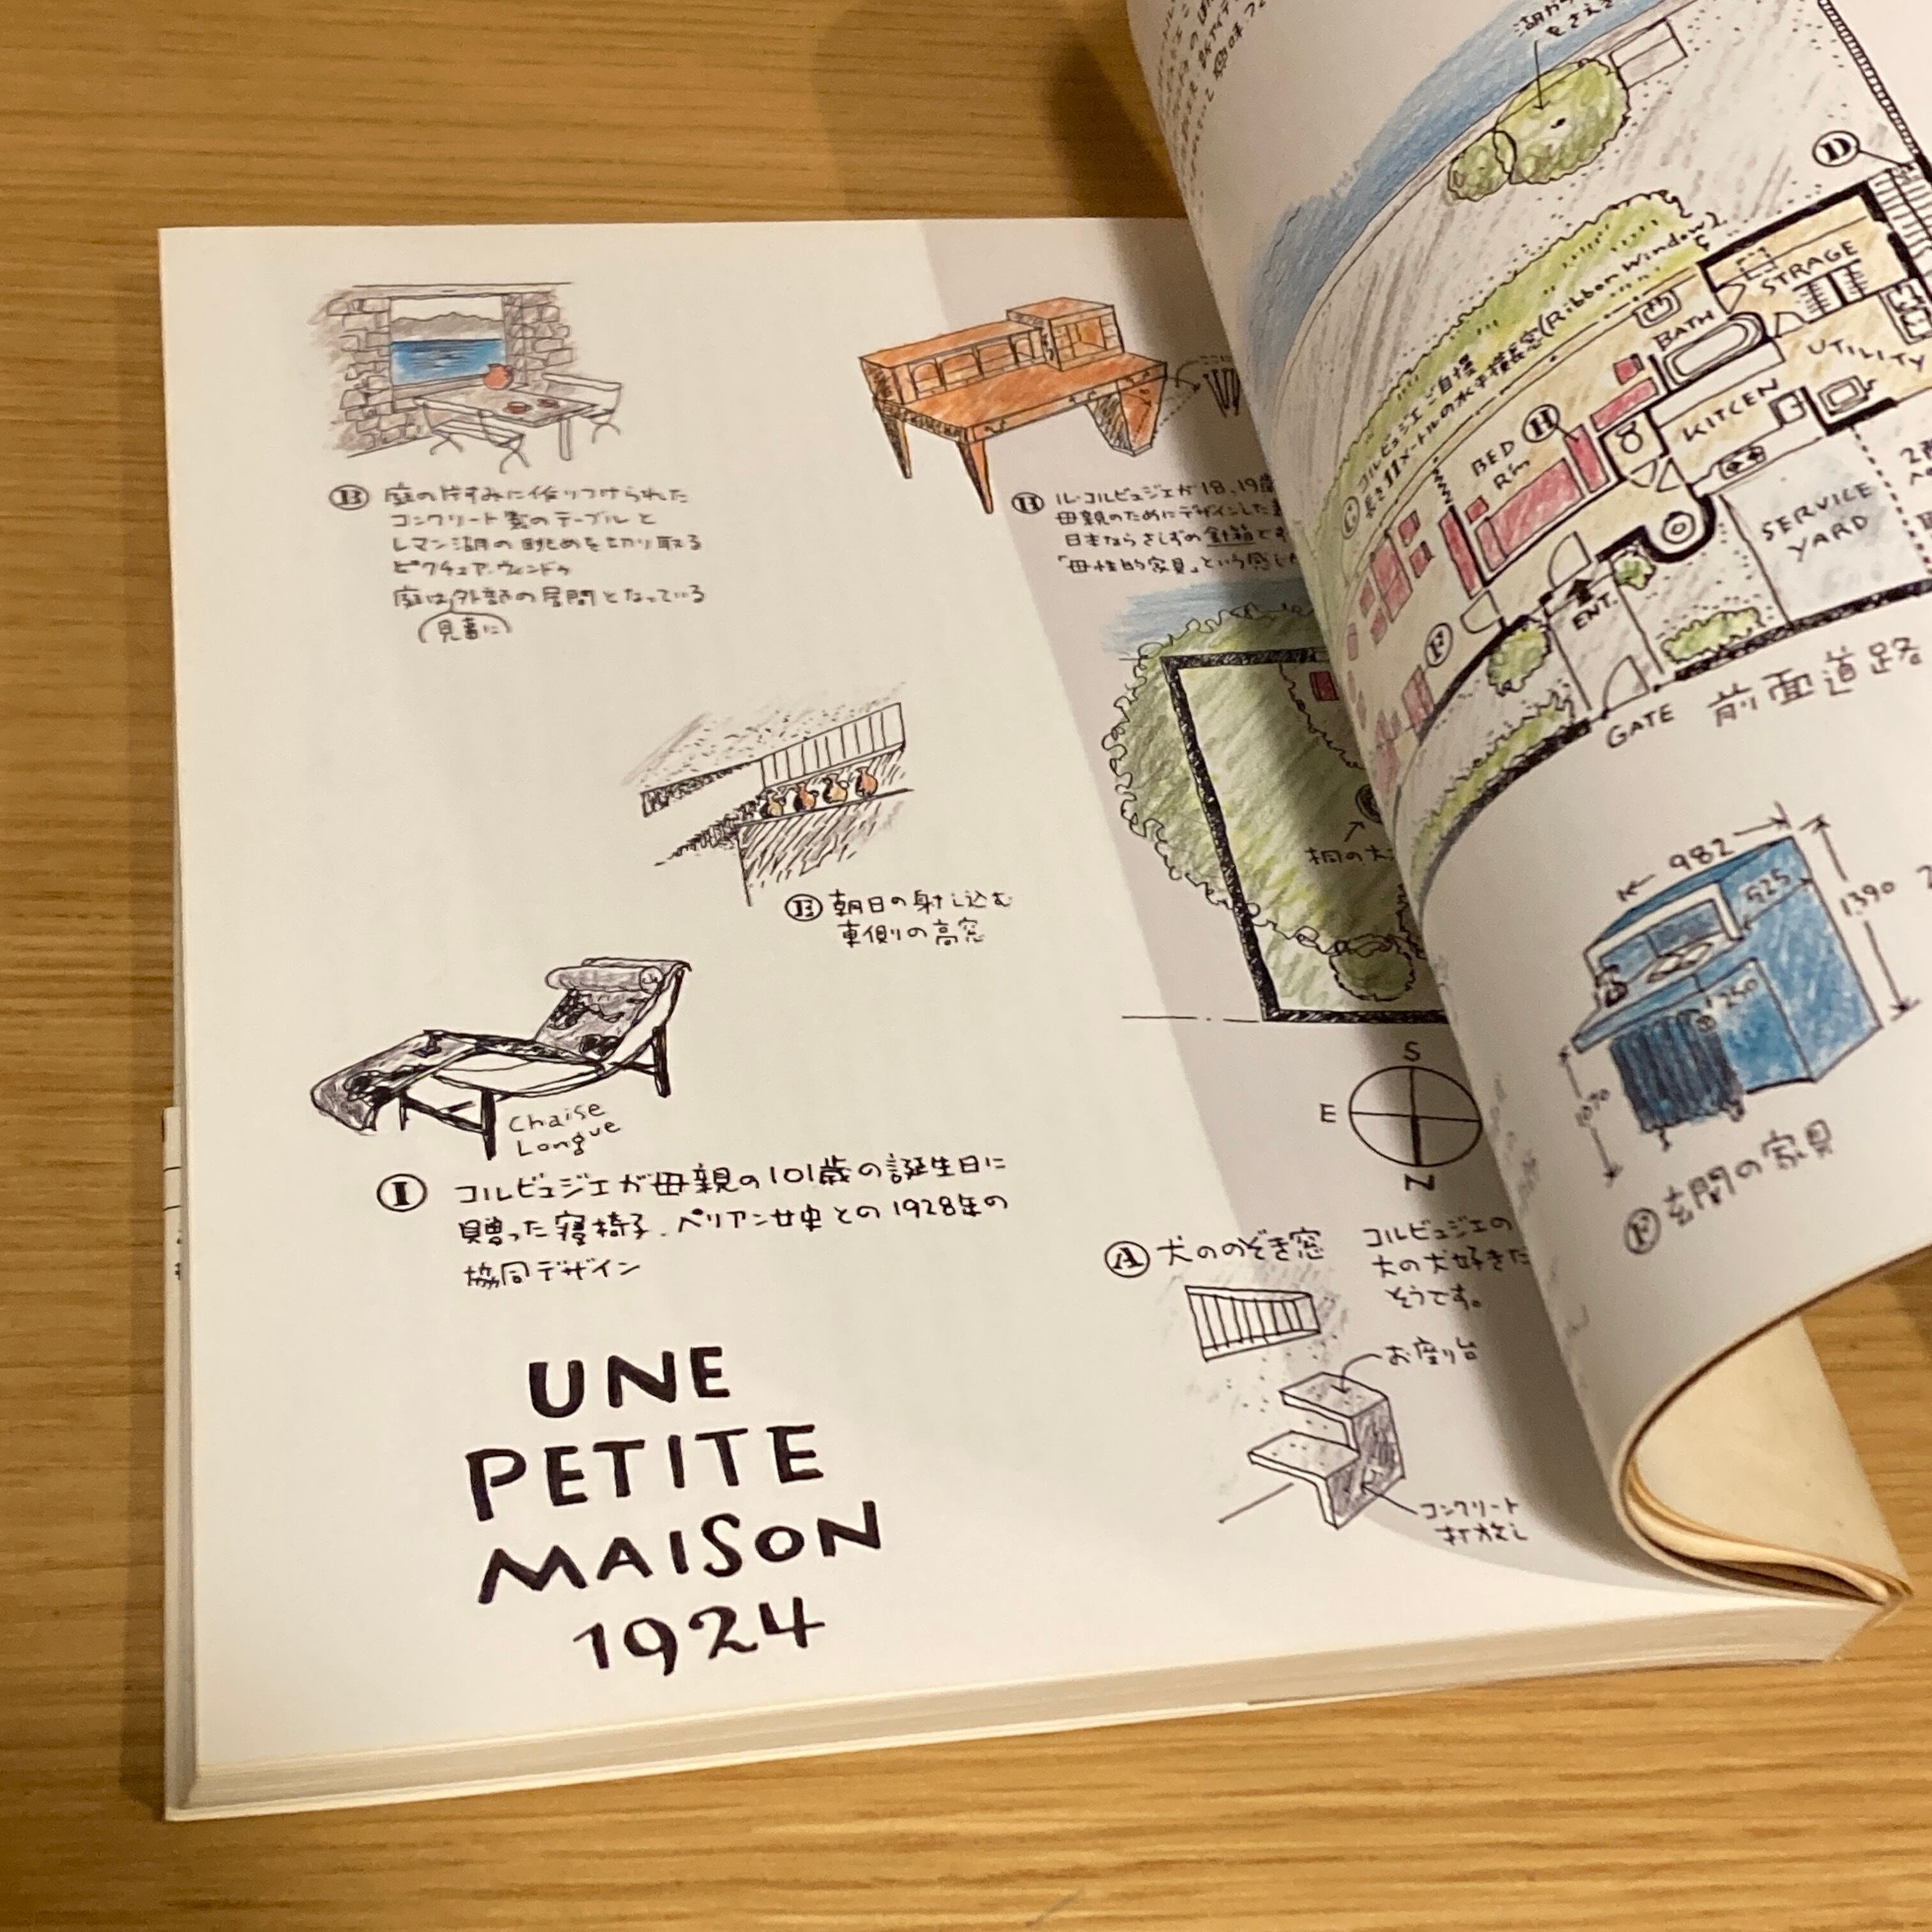 Ⓑ 庭の片すみに作りつけられた
コンクリート製のテーブルと
レマン湖の眺めを切り取る
ピクチュア・ウィンドウ
庭は外部の居間となっている
(見事に)
Ⓗ ル・コルビュジェが18、19歳
母親のためにデザインした
日本ならさしずめ針箱です
「母性的家具」という感じ
Ⓔ 朝日の射し込む
東側の高窓
Chaise
Longue
Ⓘ コルビュジェが母親の101歳の誕生日に
贈った寝椅子.ペリアン女史との1928年の
協同デザイン
UNE
PETITE
MAISON
1924
桐の大
S
E
N
Ⓐ 犬ののぞき窓
コルビュジェの
犬の犬好きだ
そうです。
お座り台
コンクリート
打放し
Ⓓ
STRAGE
BATH
UTILITY
KITCEN
Ⓗ
BED
Rm
コルビュジェご自慢
長さ11メートルの水平横長窓(Ribbon Window)
SERVICE
YARD
Ⓕ
ENT.
GATE
前面道路
982
525
1390
250
1070
Ⓕ 玄関の家具